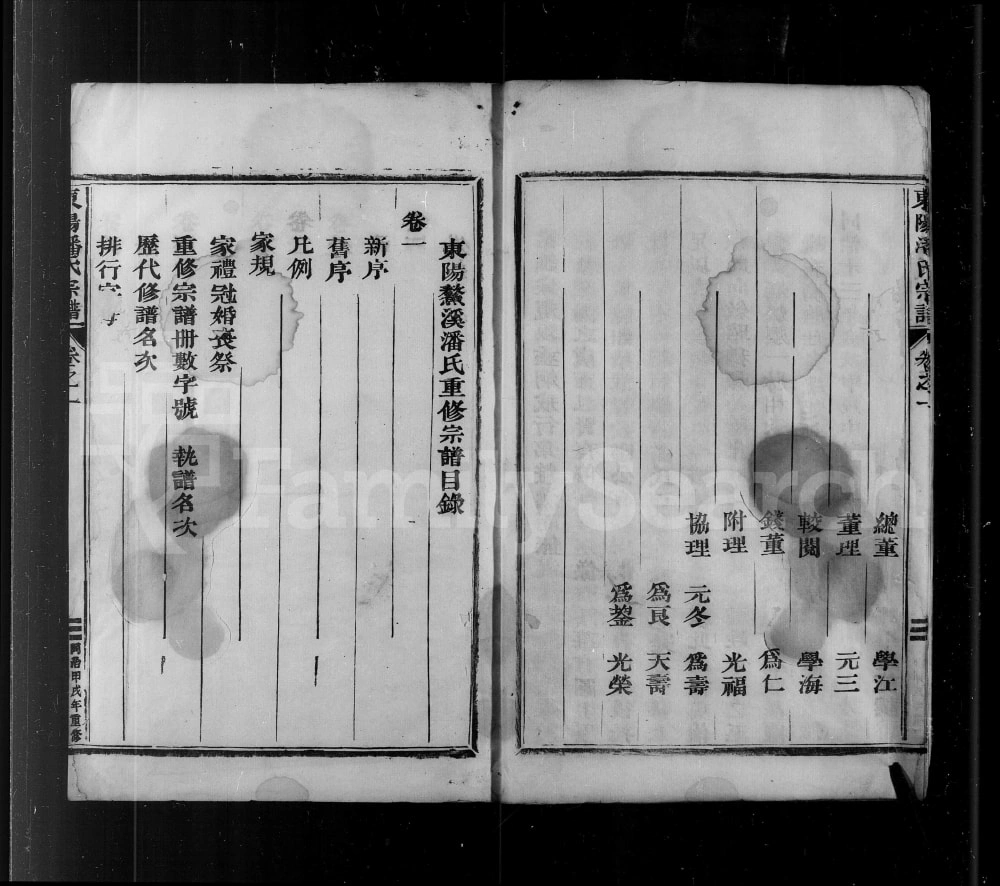 東陽潘氏宗譜 卷之一
總董 學江
董理 元三
較閱 學海
錢董 爲仁
附理 光福
協理 元冬 爲壽
爲良 天壽
爲鋆 光榮
東陽鰲溪潘氏重修宗譜目錄
卷一
新序
舊序
凡例
家規
家禮冠婚喪祭
重修宗譜冊數字號 執譜名次
歷代修譜名次
排行字
東陽潘氏宗譜 卷之一 同治甲戌年重修
FamilySearch